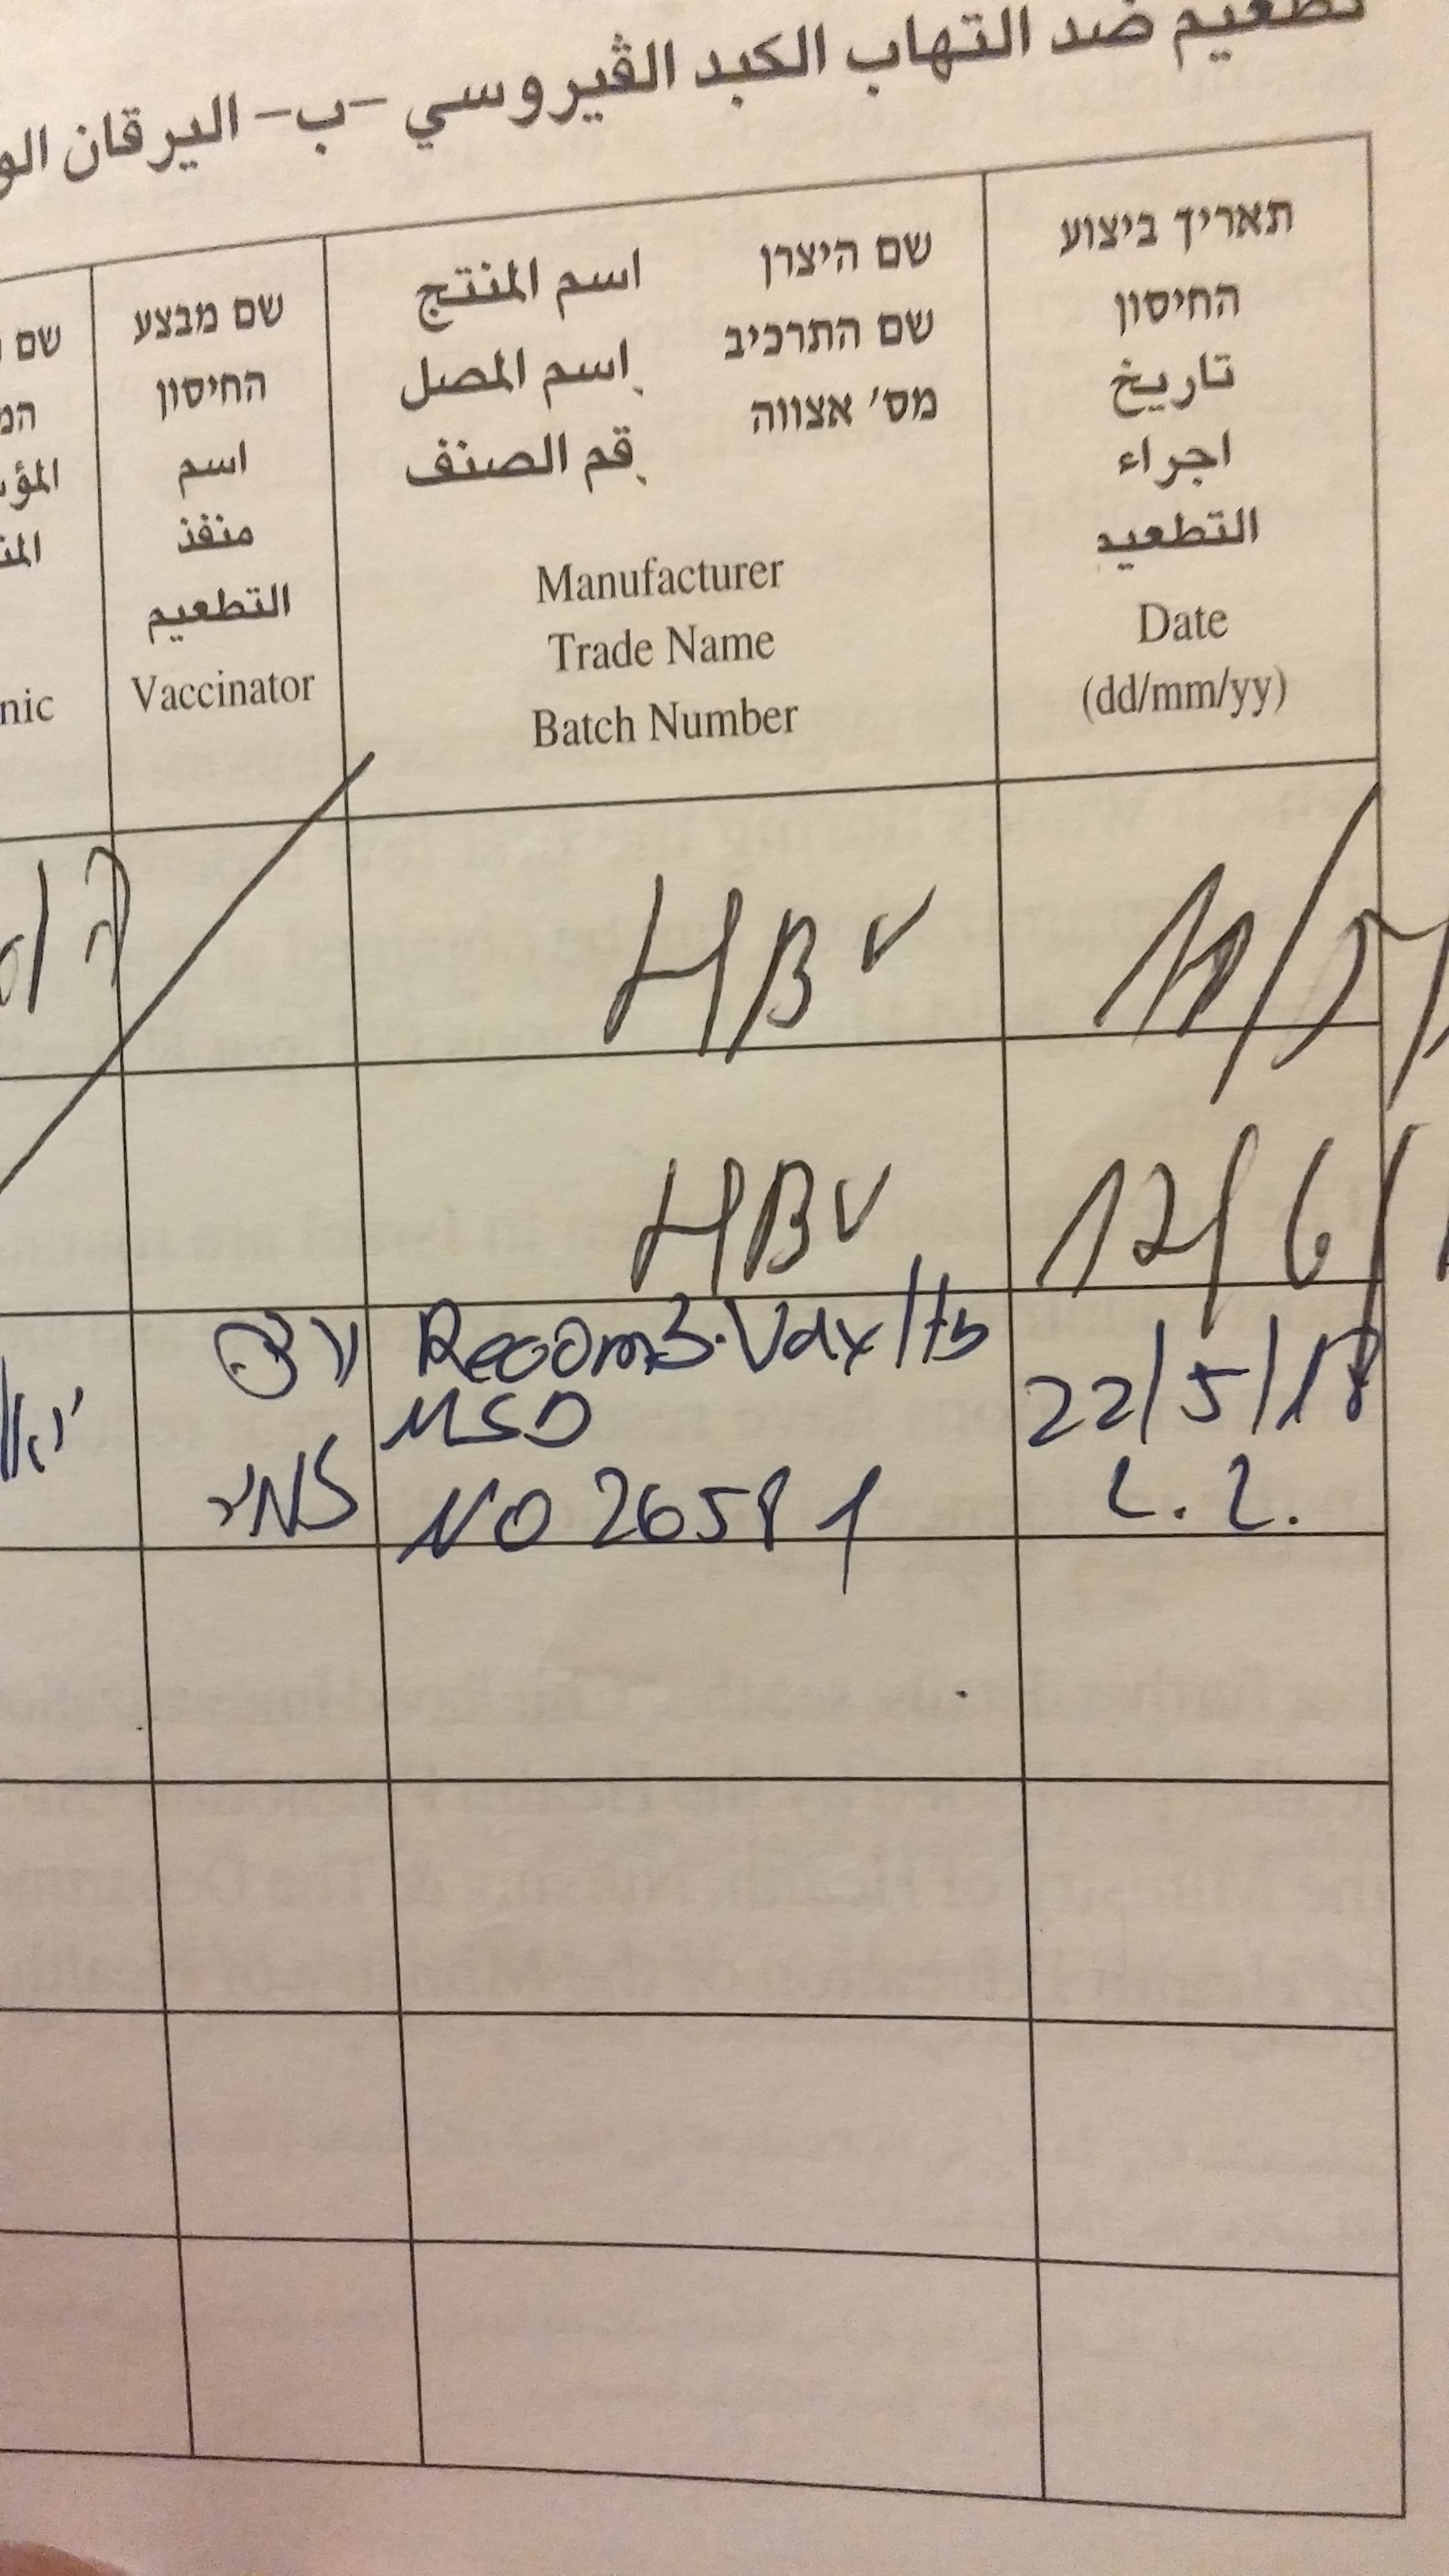 تطعيم ضد التهاب الكبد الڤيروسي -ب- اليرقان
תאריך ביצוע
החיסון
تاريخ
اجراء
التطعيم
Date
(dd/mm/yy)
שם היצרן اسم المنتج
שם התרכיב اسم المصل
מס' אצווה رقم الصنف
Manufacturer
Trade Name
Batch Number
שם מבצע
החיסון
اسم
منفذ
التطعيم
Vaccinator
שם
nic
HBV
12/6/
HBV
22/5/18
Recomb.Vax/Hb
MSD
NO26581